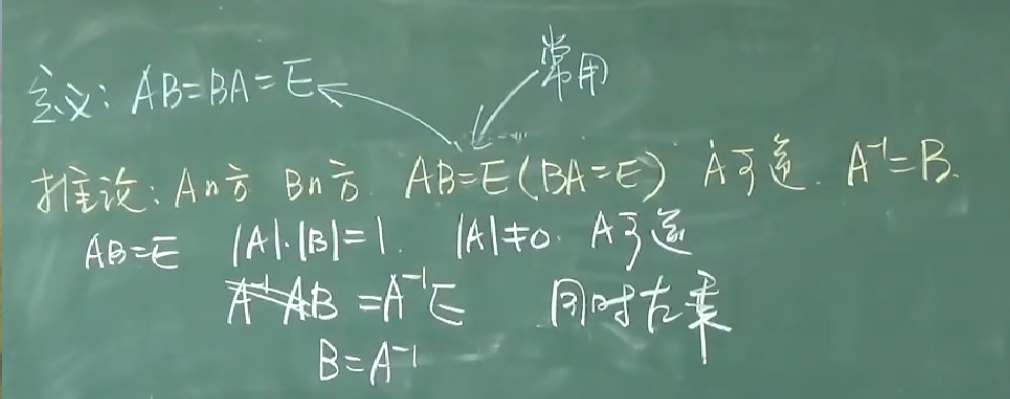 定义: AB=BA=E
常用
推论: A n方 B n方. AB=E(BA=E) A可逆. A⁻¹=B.
AB=E |A|·|B|=1. |A|≠0. A可逆
A⁻¹AB=A⁻¹E 同时左乘
B=A⁻¹